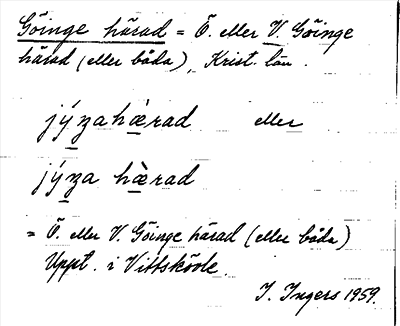 Göinge härad = Ö. eller V. Göinge
härad (eller båda), Krist. län.
jýnahærad eller
jýna hæ̀rad
= Ö. eller V. Göinge härad (eller båda)
Uppt. i Vittskövle.
I. Ingers 1959.